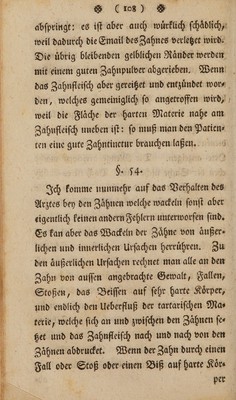 ( 108 )
abspringt: es ist aber auch würklich schädlich,
weil dadurch die Email des Zahnes verletzt wird.
Die übrig bleibenden gelblichen Ränder werden
mit einem guten Zahnpulver abgerieben. Wenn
das Zahnfleisch aber gereitzt und entzündet wor-
den, welches gemeiniglich so angetroffen wird,
weil die Fläche der harten Materie nahe am
Zahnfleisch uneben ist: so muß man den Patien-
ten eine gute Zahntinctur brauchen laßen.
§. 54.
Ich komme nunmehr auf das Verhalten des
Arztes bey den Zähnen welche wackeln sonst aber
eigentlich keinen andern Fehlern unterworfen sind.
Es kan aber das Wackeln der Zähne von äußer-
lichen und innerlichen Ursachen herrühren. Zu
den äußerlichen Ursachen rechnet man alle an den
Zahn von aussen angebrachte Gewalt, Fallen,
Stoßen, das Beissen auf sehr harte Körper,
und endlich den Ueberfluß der tartarischen Ma-
terie, welche sich an und zwischen den Zähnen se-
tzet und das Zahnfleisch nach und nach von den
Zähnen abdrucket. Wenn der Zahn durch einen
Fall oder Stoß oder einen Biß auf harte Kör-
per